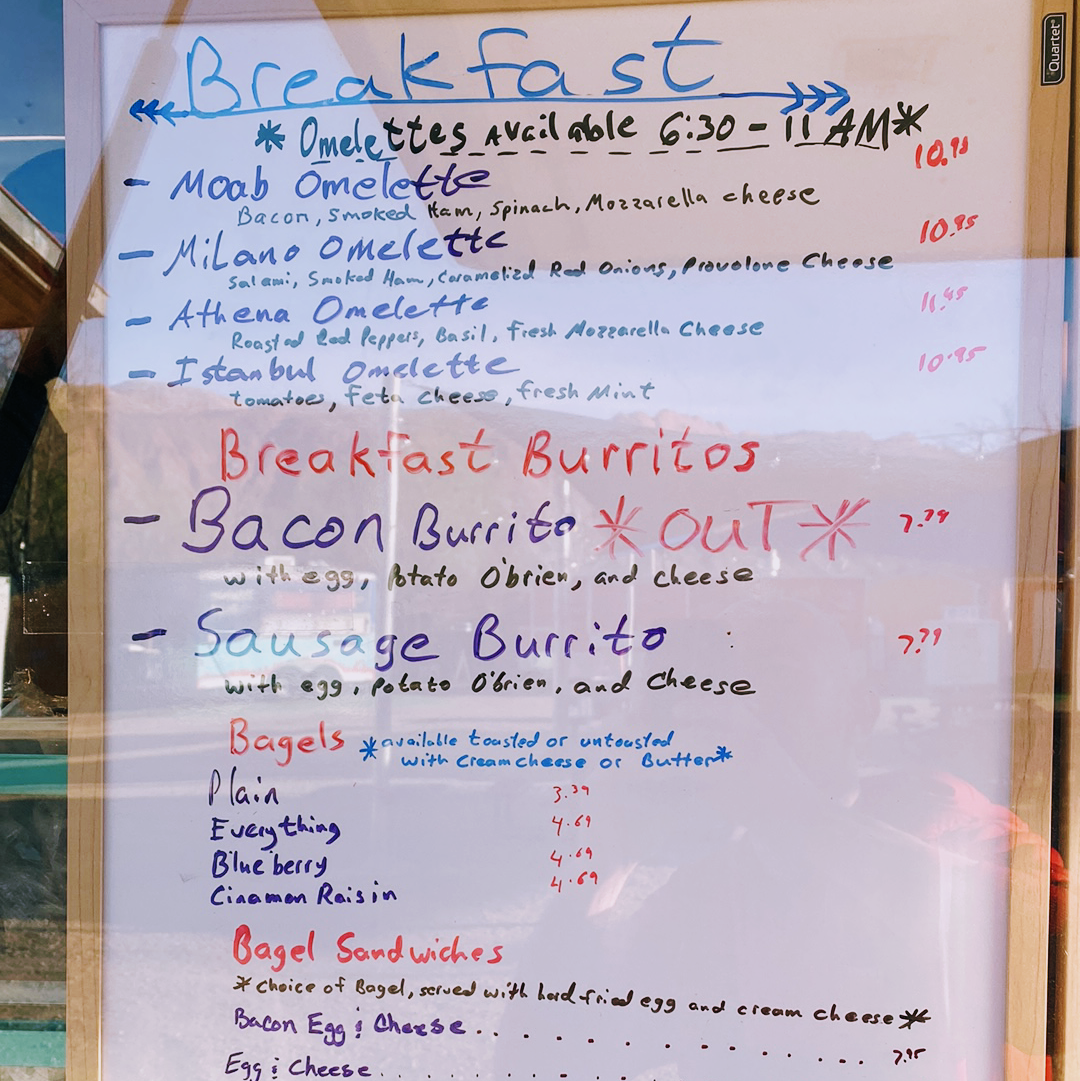 Quartet
Breakfast
* Omelettes Available 6:30 - 11 AM*
- Moab Omelette 10.95
Bacon, Smoked Ham, Spinach, Mozzarella cheese
- Milano Omelette 10.95
Salami, Smoked Ham, Caramelized Red Onions, Provolone Cheese
- Athena Omelette 11.45
Roasted Red Peppers, Basil, fresh Mozzarella Cheese
- Istanbul Omelette 10.95
tomatoes, feta cheese, fresh Mint
Breakfast Burritos
- Bacon Burrito *OUT* 7.79
with egg, Potato O'brien, and cheese
- Sausage Burrito 7.79
with egg, potato O'brien, and Cheese
Bagels *available toasted or untoasted
with Creamcheese or Butter*
Plain 3.39
Everything 4.69
Blueberry 4.69
Cinamon Raisin 4.69
Bagel Sandwiches
*Choice of Bagel, served with hard fried egg and cream cheese*
Bacon Egg & Cheese . . . . . . . . . . . . 7.95
Egg & Cheese . . . . . . .